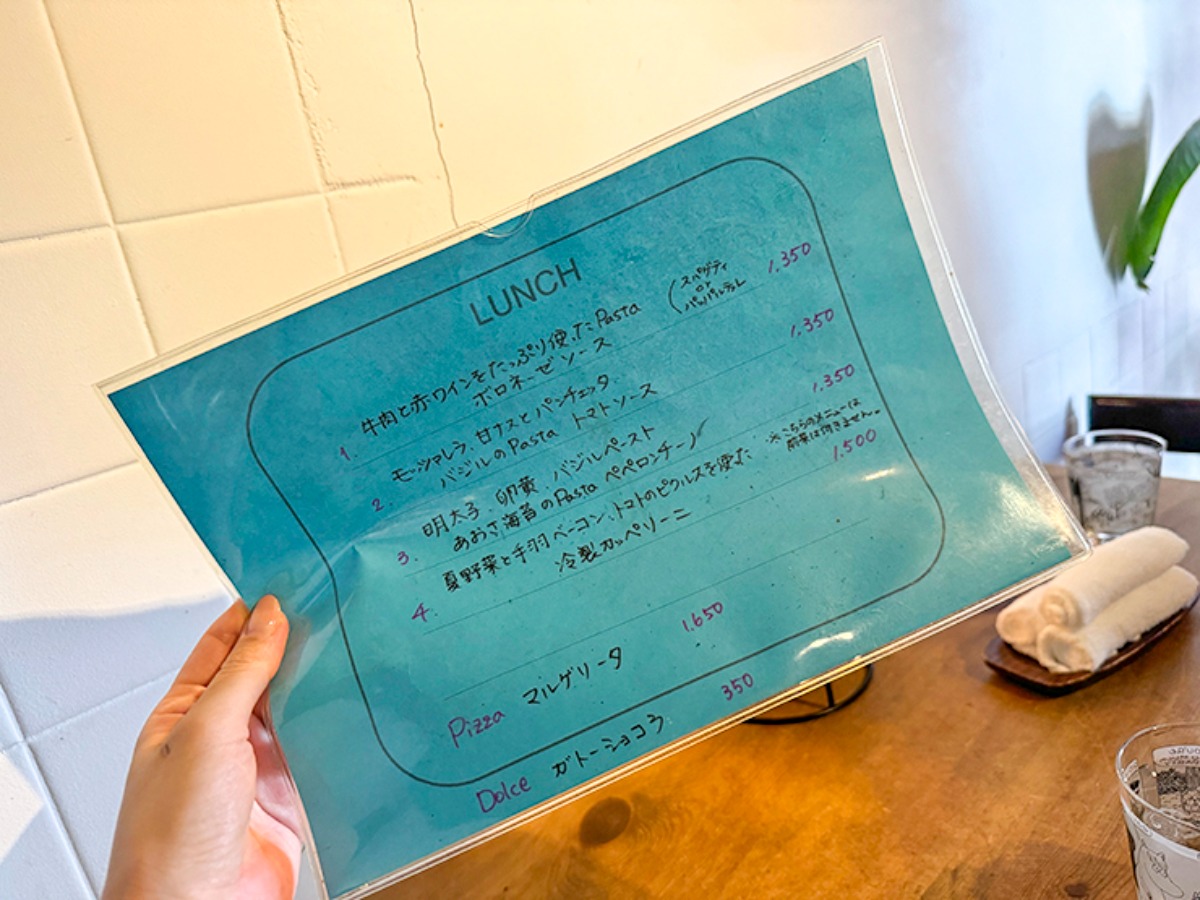 LUNCH
1. 牛肉と赤ワインをたっぷり使ったPasta (スパゲティ or パッパルデッレ) 1,350
ボロネーゼソース
2. モッツァレラ、甘ナスとパンチェッタ 1,350
バジルのPasta トマトソース
3. 明太子、卵黄、バジルペースト 1,350
あおさ海苔のPasta ペペロンチーノ
※こちらのメニューは
前菜は付きません。
4. 夏野菜と手羽ベーコン、トマトのピクルスを使った 1,500
冷製カッペリーニ
Pizza マルゲリータ 1,650
Dolce ガトーショコラ 350